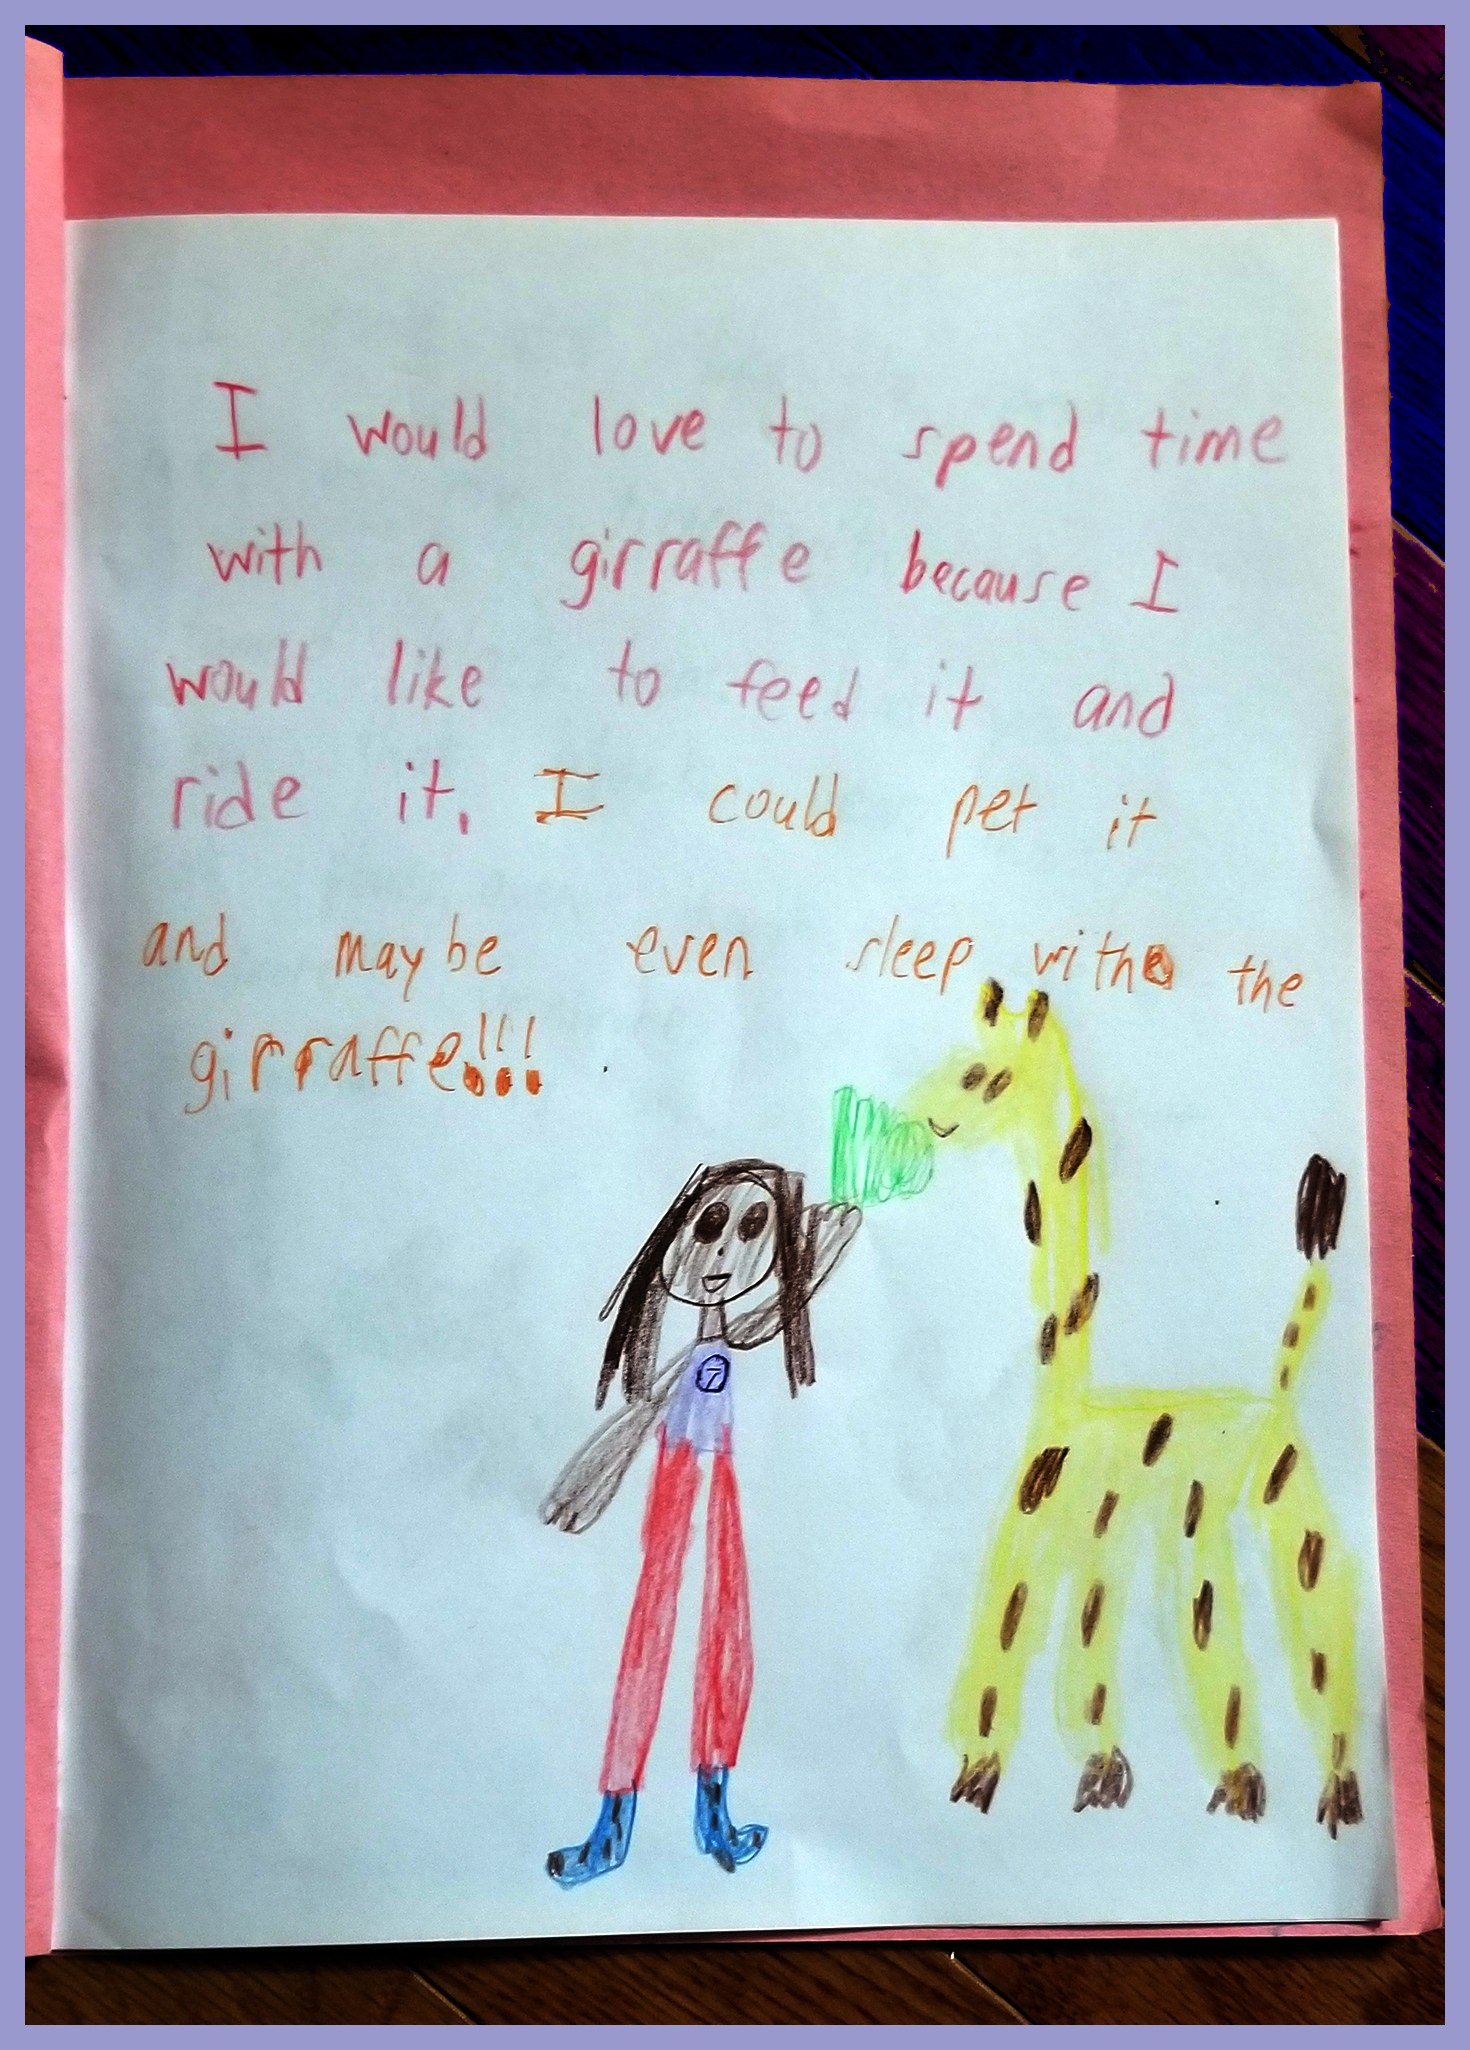 I would love to spend time
with a girraffe because I
would like to feed it and
ride it. I could pet it
and maybe even sleep with the
girraffe!!!
7